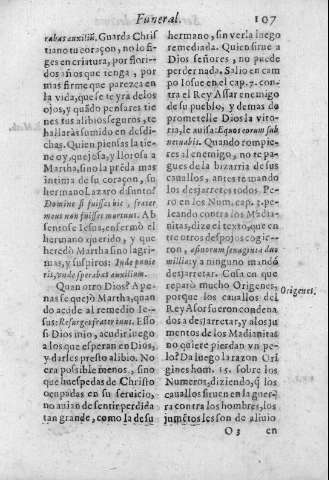 Funeral. 107
rabas auxiliũ. Guarda Chris
tiano tu coraçon, no lo fi-
ges en criatura, por flori-
dos años que tenga, por
mas firme que parezca en
la vida, que se te yrà de los
ojos, y quãdo pensares tie
nes tus alibios seguros, te
hallaràs sumido en desdi-
chas. Quien piensas la tie
ne oy, quexosa, y llorosa a
Martha, sino la prẽda mas
intima de su coraçon, su
hermano Lazaro difunto?
Domine si fuisses hic, frater
meus non fuisset mortuus. Ab
sento se Iesus, enfermò el
hermano querido, y que
heredò Martha sino lagri-
mas, y suspiros: Inde pœnite
ris, vnde sperabas auxilium.
Quan otro Dios? Ape-
nas se quexò Martha, quan
do acude al remedio Ie-
sus: Resurget frater tuus. Esso
si Dios mio, acudir luego
a los que esperan en Dios,
y darles presto alibio. No
era possible menos, sino
que huespedas de Christo
ocupadas en su seruicio,
no auian de sentir perdida
tan grande, como la de su
hermano, sin verla luego
remediada. Quien sirue a
Dios señores, no puede
perder nada. Saliò en cam
po Iosue en el cap. 7. con-
tra el Rey Assur enemigo
de su pueblo, y demas de
prometelle Dios la vito-
ria, le auisa: Equos eorum sub
neruabis. Quando rompie-
res al enemigo, no te pa-
gues de la bizarria de sus
cauallos, antes te mando
los desjarretes todos. Pe-
ro en los Num. cap. 7. pe-
leando contra los Madia-
nitas, dize el texto, que en
tre otros despojos cogie-
ron, asinorum sexaginta duo
millia; y a ninguno mandò
desjarretar. Cosa en que
reparò mucho Origenes,
porque los cauallos del
Rey Asor fueron condena
dos a desjarretar, y a los ju
mentos de los Madianitas
no quiere pierdan vn pe-
lo? Da luego la razon Ori
gines hom. 15. sobre los
Numeros, diziendo, q̃ los
cauallos siruen en la guer-
ra contra los hombres, los
jumẽtos les son de aliuio
Origenes.
O 3 en